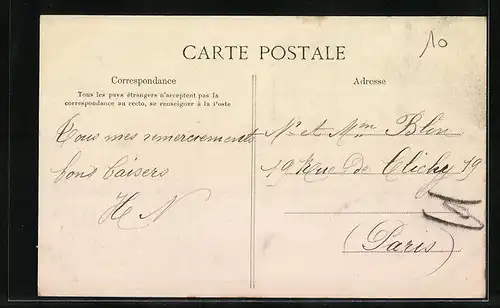 10
CARTE POSTALE
Correspondance
Tous les pays étrangers n'acceptent pas la
correspondance au recto, se renseigner à la Poste
Tous mes remerciements
bons baisers
H N
Adresse
Mr et Mme Blin
19 Rue de Clichy 19
(Paris)